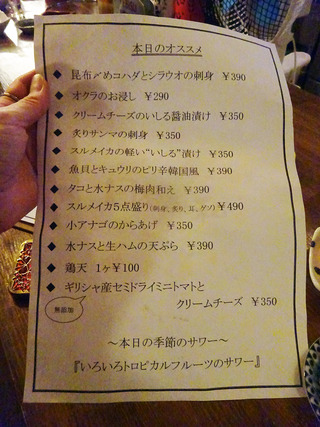 本日のオススメ
◆ 昆布〆めコハダとシラウオの刺身 ¥390
◆ オクラのお浸し ¥290
◆ クリームチーズのいしる醤油漬け ¥350
◆ 炙りサンマの刺身 ¥350
◆ スルメイカの軽い“いしる”漬け ¥350
◆ 魚貝とキュウリのピリ辛韓国風 ¥390
◆ タコと水ナスの梅肉和え ¥390
◆ スルメイカ5点盛り(刺身、炙り、耳、ゲソ) ¥490
◆ 小アナゴのからあげ ¥350
◆ 水ナスと生ハムの天ぷら ¥390
◆ 鶏天 1ヶ¥100
◆ ギリシャ産セミドライミニトマトと
クリームチーズ ¥350
無添加
～本日の季節のサワー～
『いろいろトロピカルフルーツのサワー』